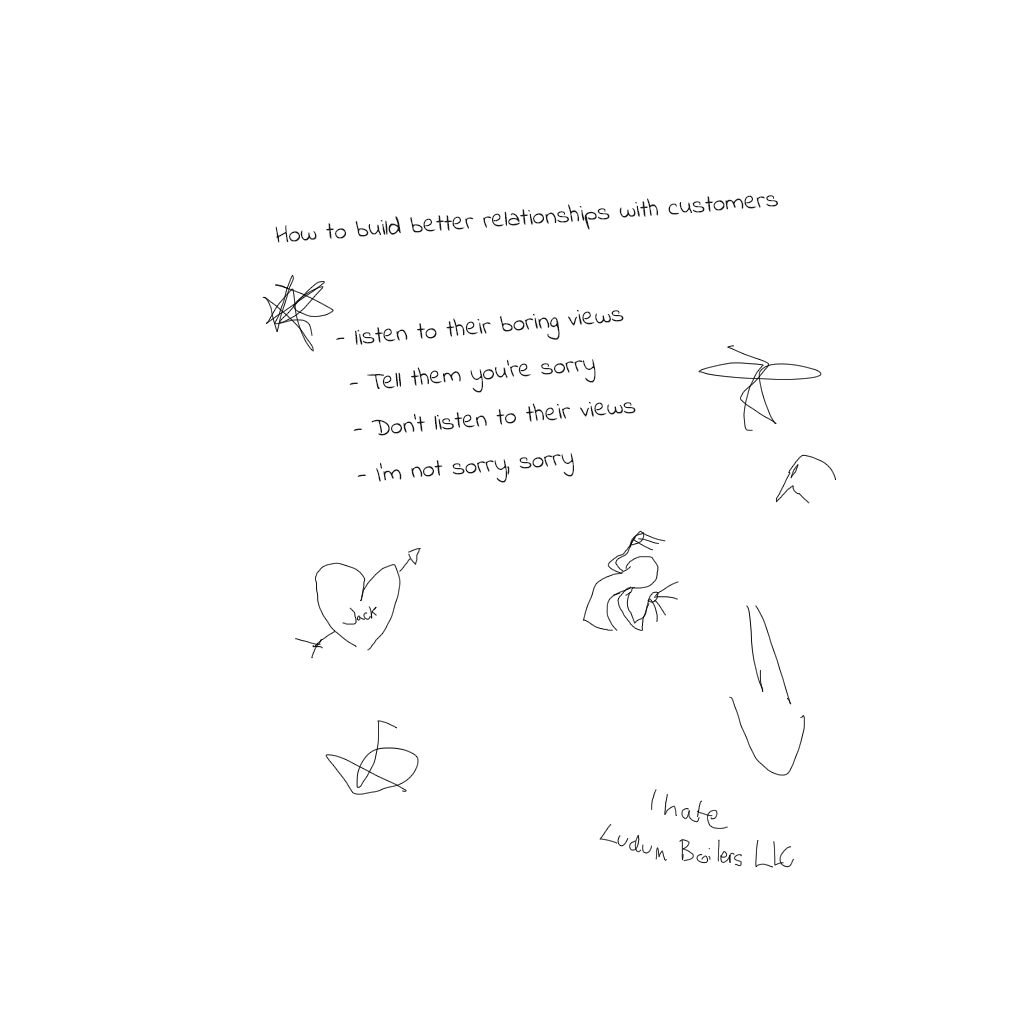 How to build better relationships with customers
- listen to their boring views
- Tell them you're sorry
- Don't listen to their views
- I'm not sorry, sorry
Jack
I hate
Ludum Boilers LLC